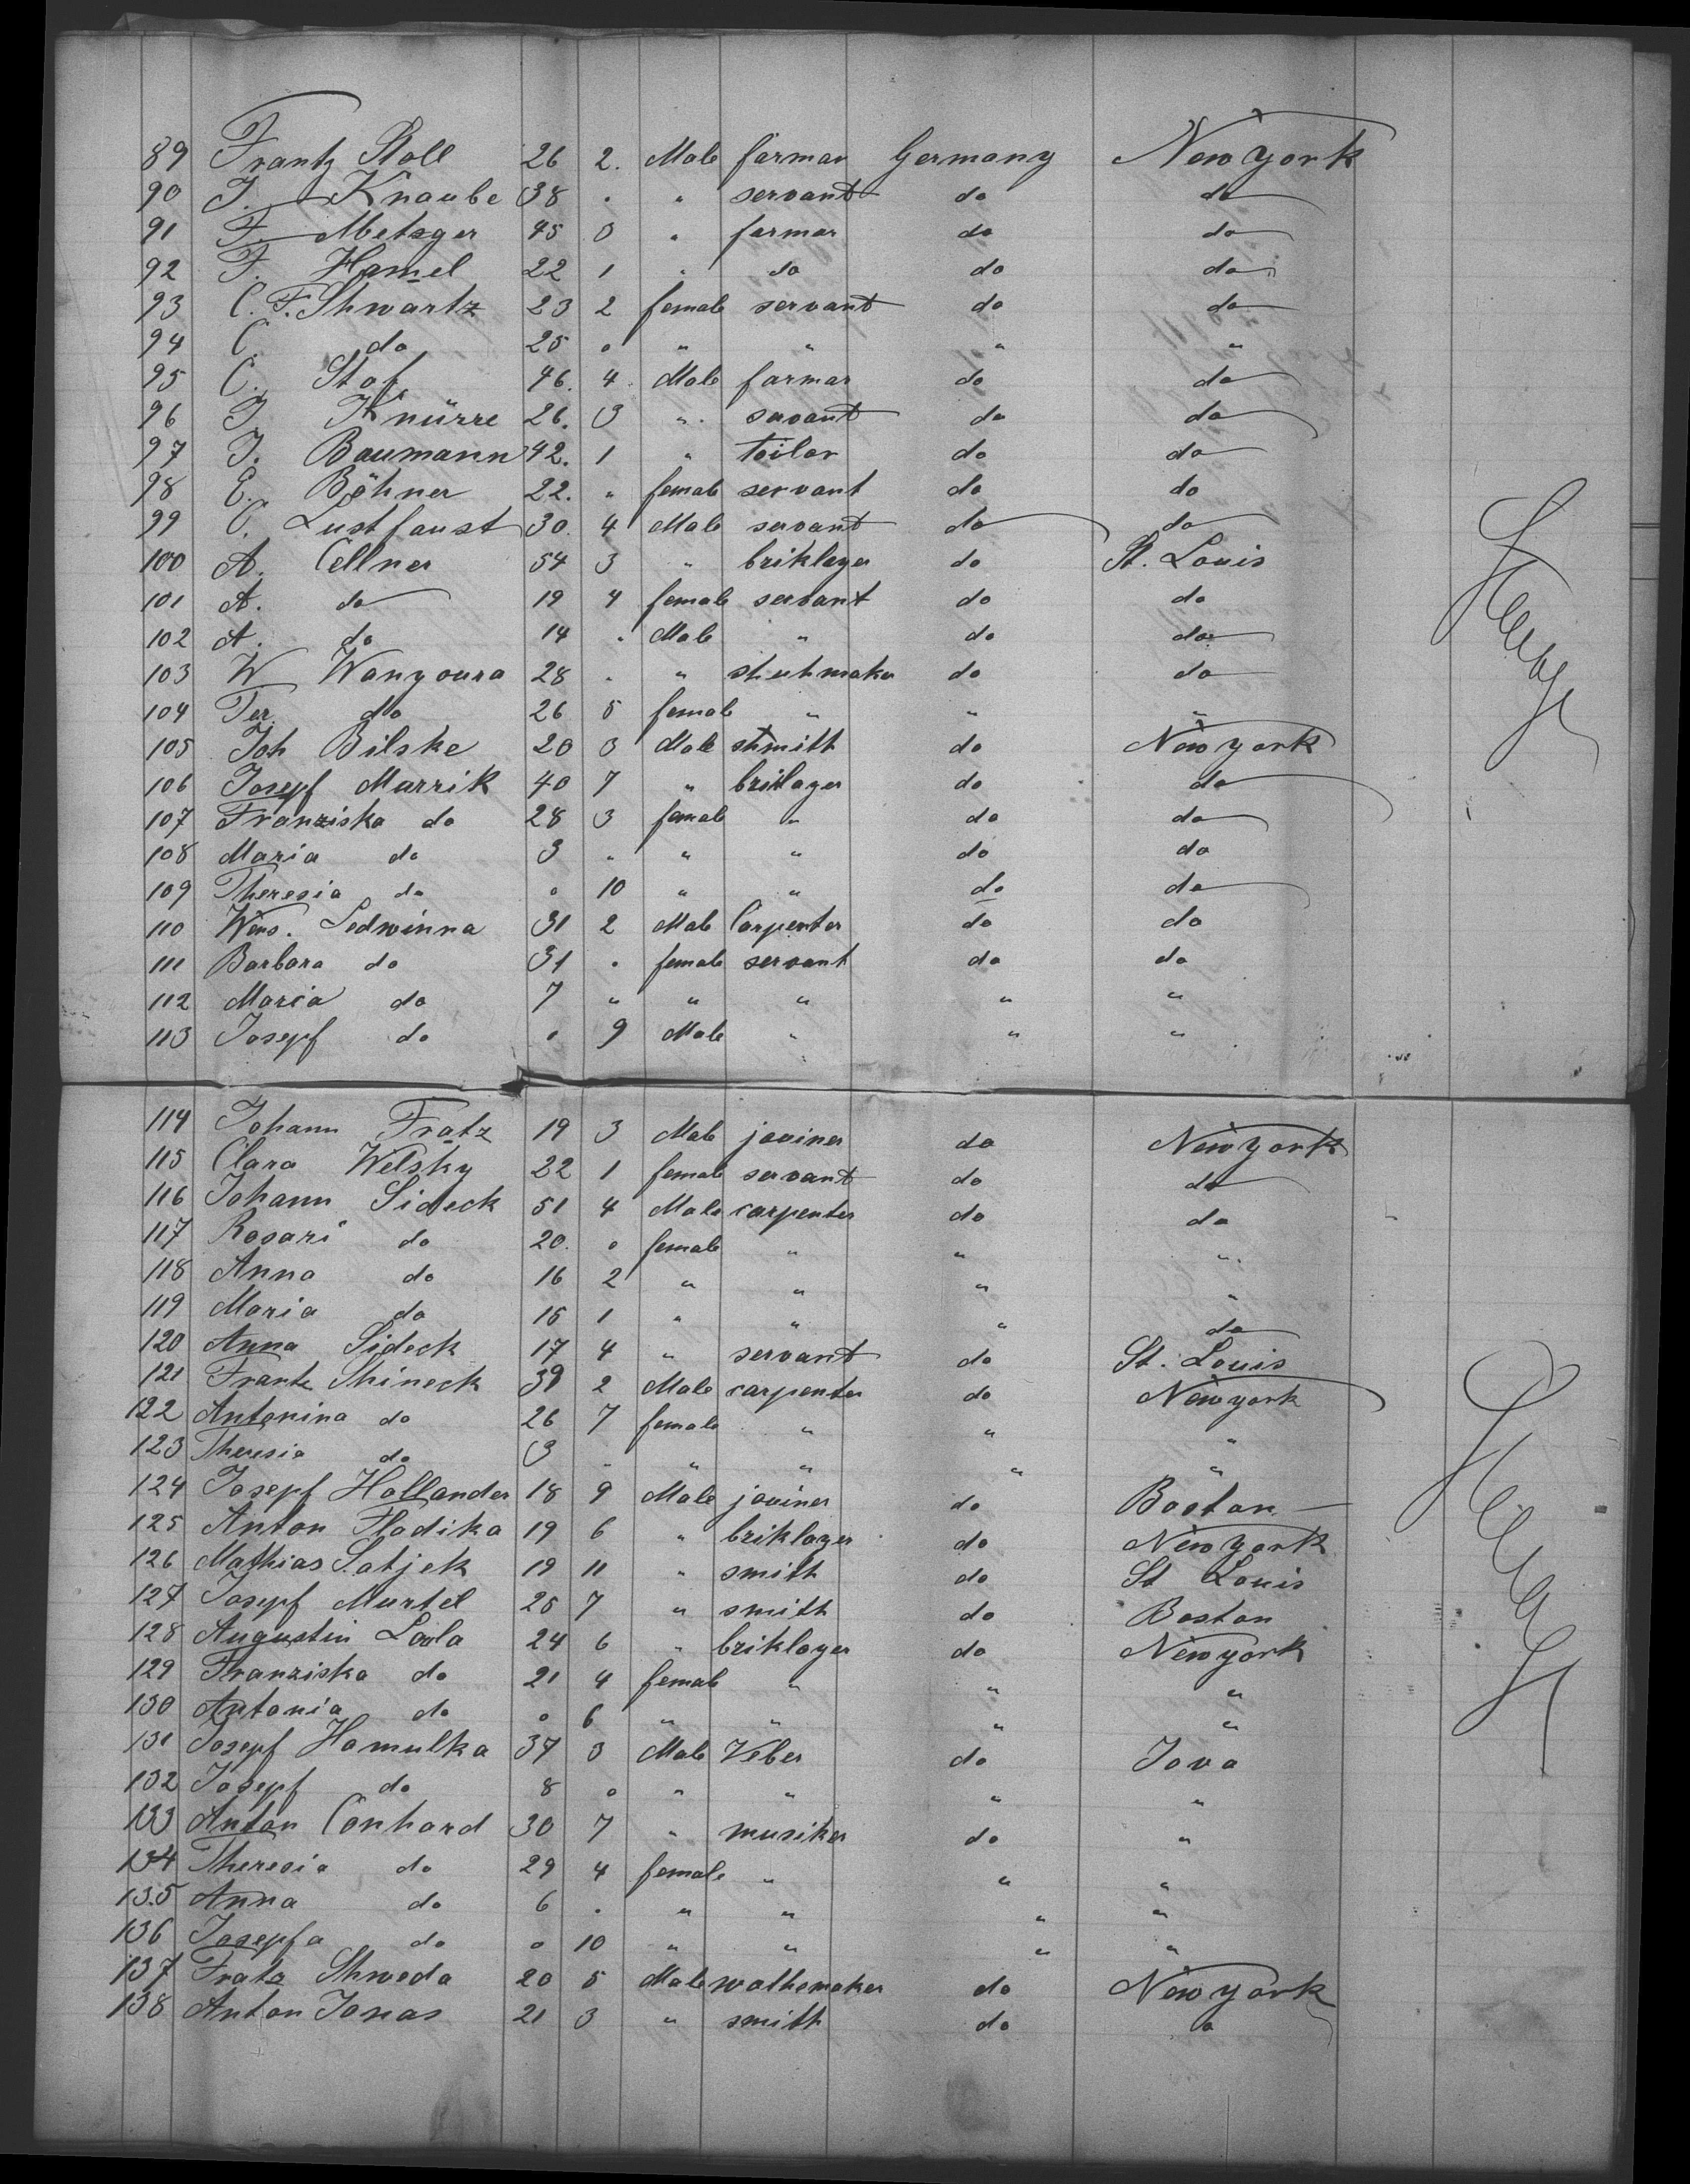 89 Frantz Stoll 26 2. Male farmar Germany New York
90 J. Knaube 38 " " servant do do
91 F. Metzger 45 3 " farmar do do
92 F. Hamel 22 1 " do do do
93 C. F. Shwartz 23 2 female servant do do
94 C. do 25 " " " " "
95 C. Stof 46. 4 Male farmar do do
96 J Knürre 26. 3 " savant do do
97 J. Baumann 42. 1 " toilor do do
98 E. Böhner 22. " female servant do do
99 C. Lustfaust 30. 4 Male servant do do
100 A. Cellner 54 3 " briklayer do St. Louis
101 A. do 19 4 female servant do do
102 A. do 14 " Male " do do
103 W Wanyoura 28 " " shuhmaker do do
104 Ter. do 26 5 female " " "
105 Joh Bilske 20 3 Male shmith do New york
106 Josepf Marrik 40 7 " brilayer do do
107 Franziska do 28 3 female " do do
108 Maria do 3 " " " do do
109 Theresia do " 10 " " do do
110 Wens. Ledwinna 31 2 Male Carpenter do do
111 Barbara do 31 " female servant do do
112 Maria do 7 " " " " "
113 Josepf do " 9 Male " " "
114 Johann Fratz 19 3 Male joviner do New york
115 Clara Welsky 22 1 female servant do do
116 Johann Sideck 51 4 Male carpenter do do
117 Rosari do 20. " female " " "
118 Anna do 16 2 " " " "
119 Maria do 15 1 " " " do
120 Anna Sideck 17 4 " servant do St. Louis
121 Frantz Shineck 39 2 Male carpenter do New york
122 Antonina do 26 7 female " " "
123 Theresia do 3 " " " " "
124 Josepf Hollander 18 9 Male joviner do Boston
125 Anton Fladika 19 6 " briklayer do New york
126 Mathias Satjek 19 11 " smith do St Louis
127 Josepf Murtel 25 7 " smith do Boston
128 Augustin Loola 24 6 " briklayer do New york
129 Franziska do 21 4 female " " "
130 Antonia do " 6 " " " "
131 Josepf Homulka 37 3 Male Veber do Jova
132 Josepf do 8 " " " " "
133 Anton Conhard 30 7 " musiker do "
134 Theresia do 29 4 female " " "
135 Anna do 6 " " " " "
136 Josepfa do " 10 " " " "
137 Fratz Shweda 20 5 Male wathemaker do New york
138 Anton Jonas 21 3 " smith do do